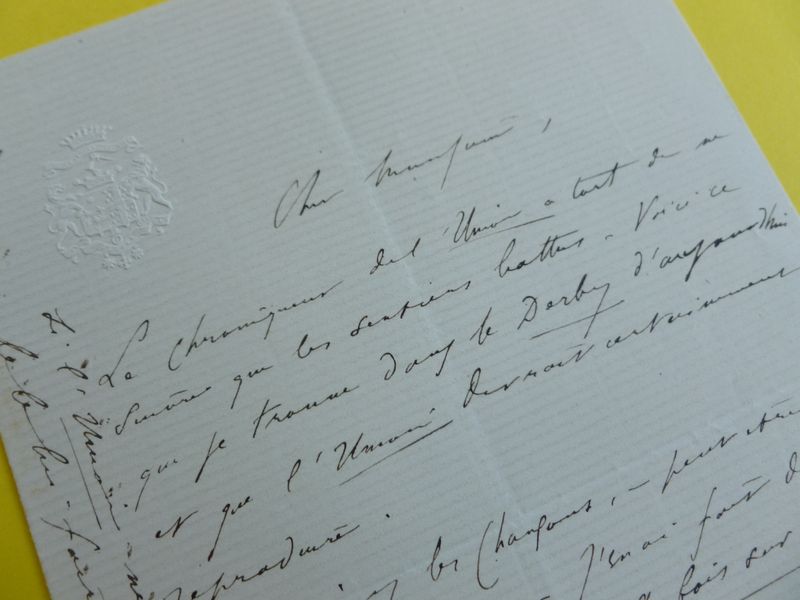 Cher Monsieur,
Le chroniqueur de l'Union a tort de ne
suivre que les sentiers battus. Voici ce
que je trouve dans le Derby d'aujourd'hui
et que l'Union devrait certainement
reproduire.
les Chansons, – peut-être
J'en ai fait
fois sur
Si l'Union